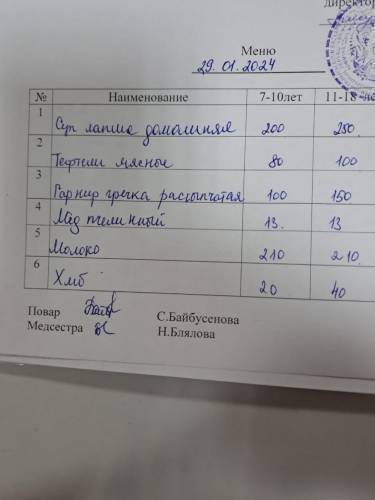 директор
Меню
29.01.2024
№ Наименование 7-10лет 11-18 ле
1 Суп лапша домашняя 200 250
2 Тефтели мясные 80 100
3 Гарнир гречка рассыпчатая 100 150
4 Мёд пчелинный 13. 13
5 Молоко 210 210
6 Хлеб 20 40
Повар С.Байбусенова
Медсестра Н.Блялова